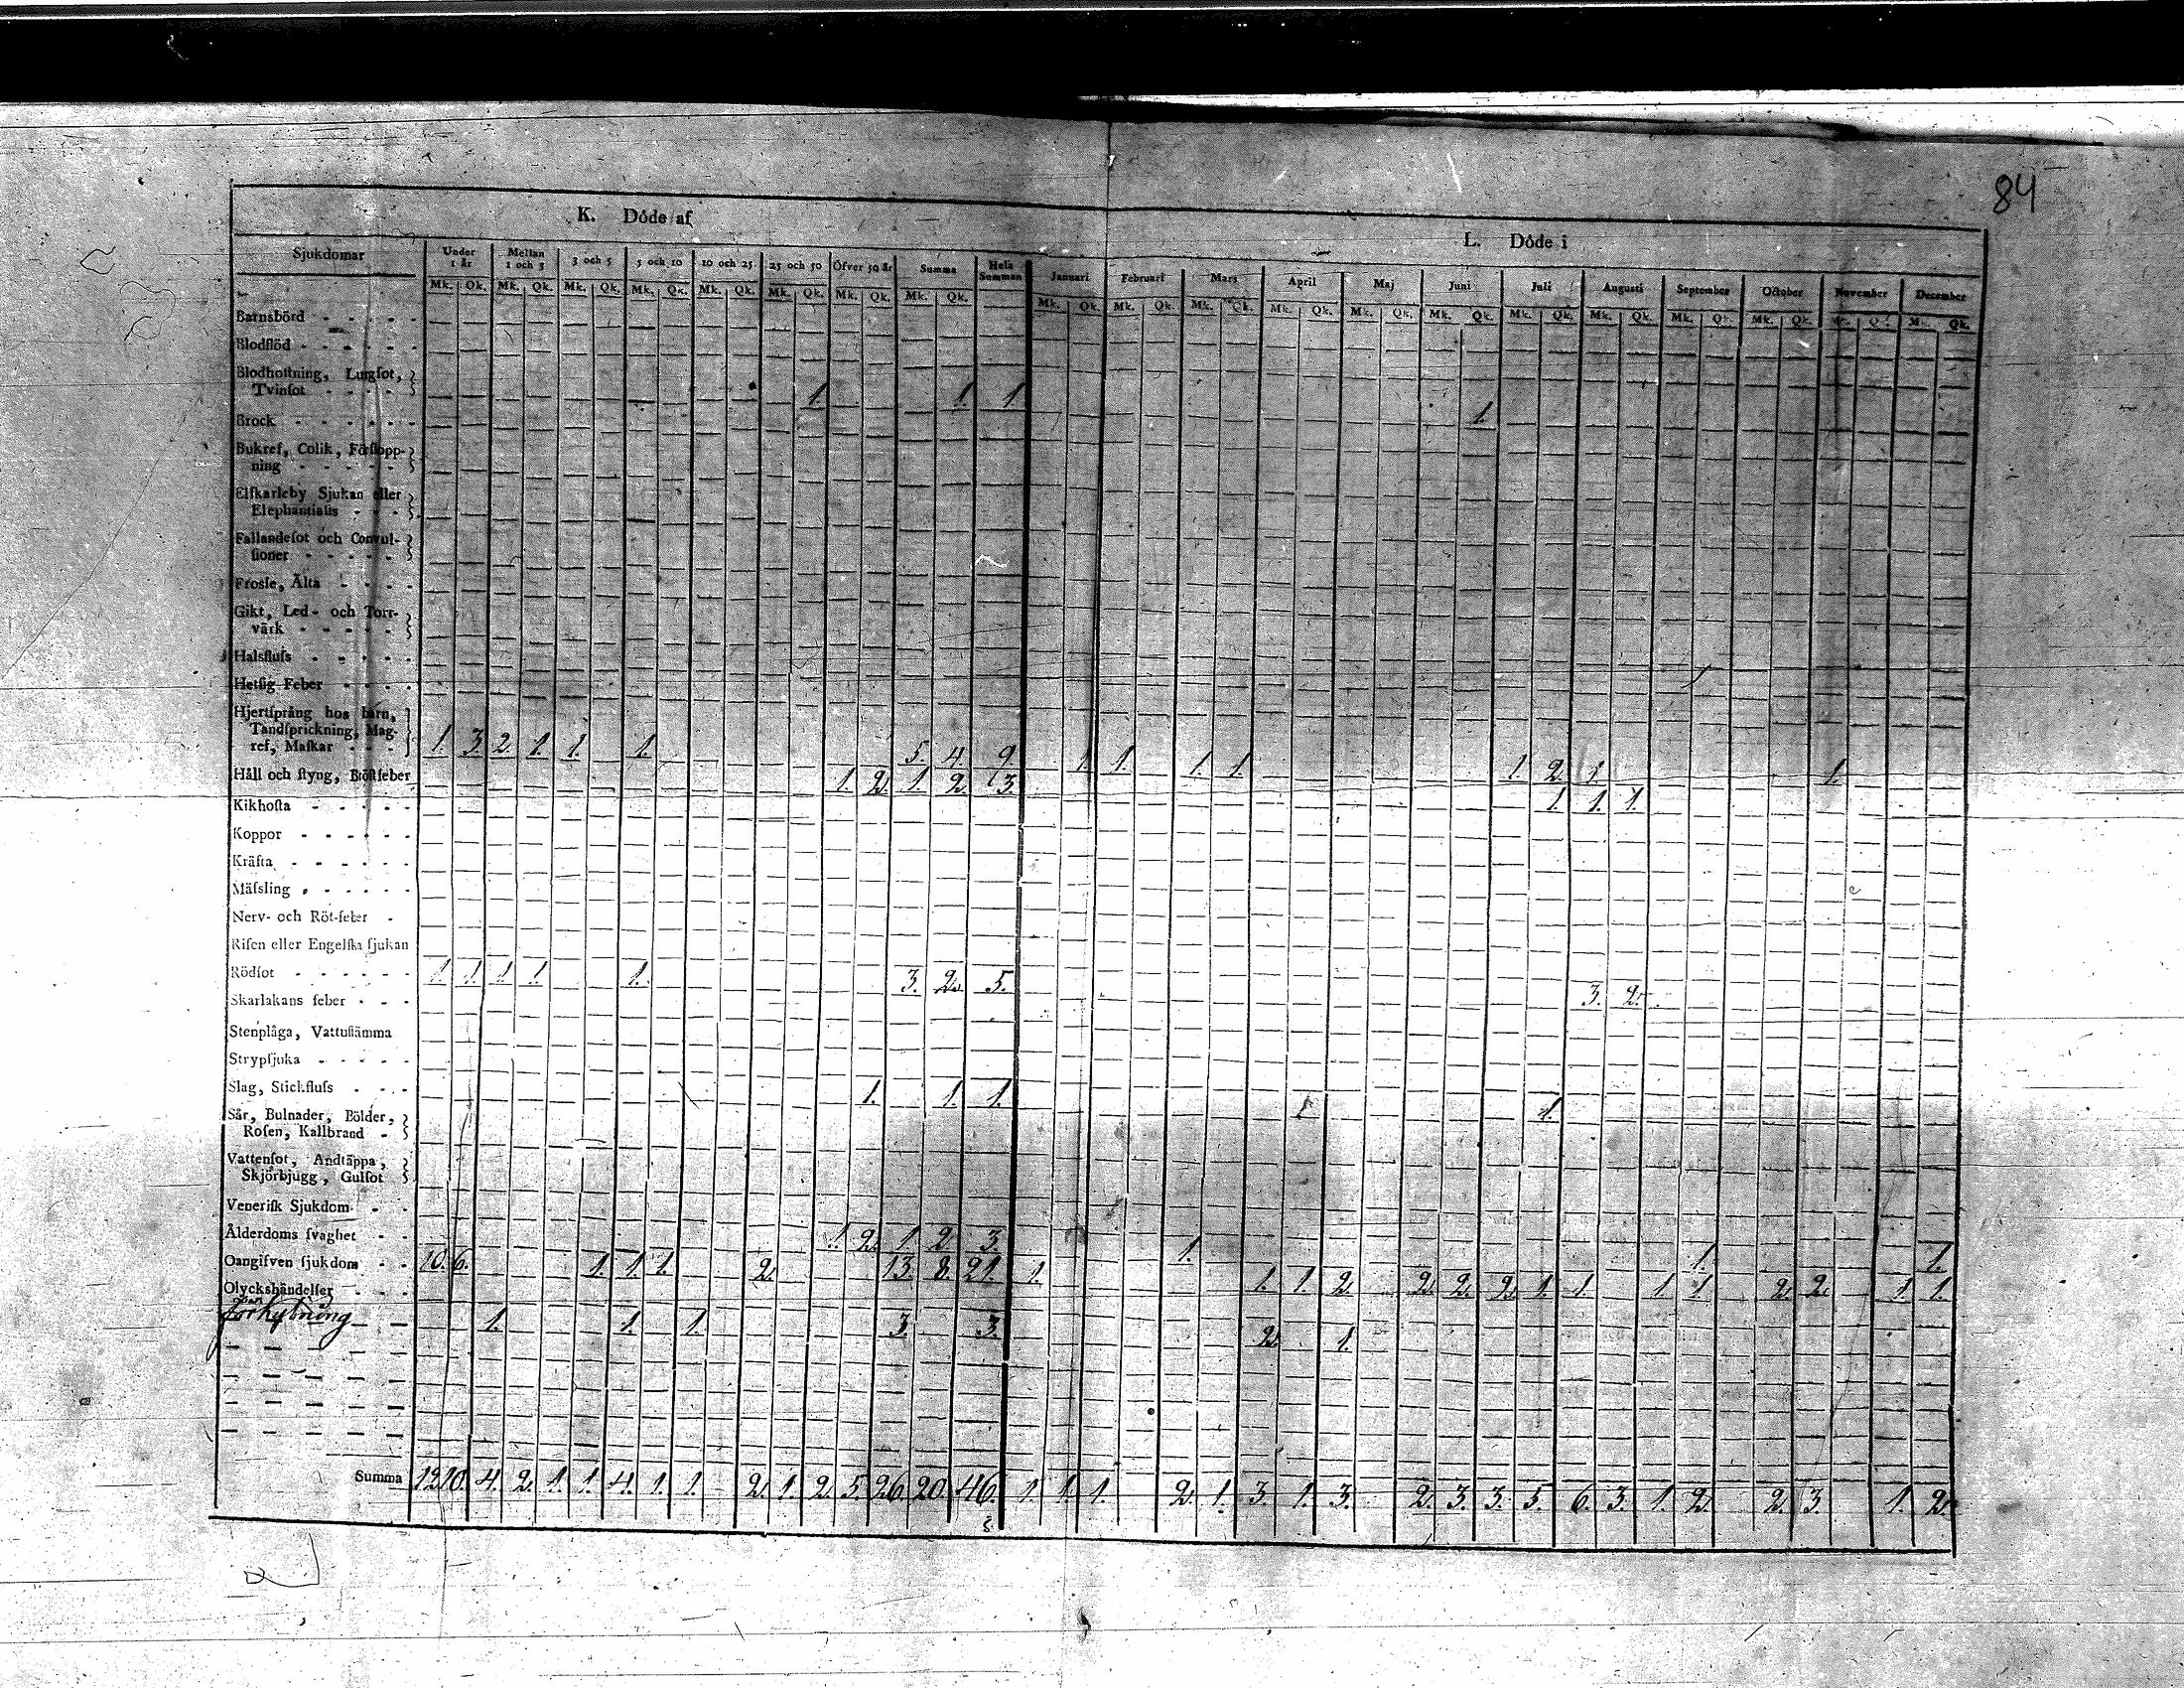 84
K. Döde af
L. Döde i
Sjukdomar Under 1 år Mellan 1 och 3 3 och 5 5 och 10 10 och 25 25 och 50 Öfver 50 år Summa Hela Summan Januari Februari Mars April Maj Juni Juli Augusti September October November December
Mk. Qk. Mk. Qk. Mk. Qk. Mk. Qk. Mk. Qk. Mk. Qk. Mk. Qk. Mk. Qk. Mk. Qk. Mk. Qk. Mk. Qk. Mk. Qk. Mk. Qk. Mk. Qk. Mk. Qk. Mk. Qk. Mk. Qk. Mk. Qk. Mk. Qk. Mk. Qk.
Barnsbörd
Blodflöd
Blodhostning, Lungſot,
Tvinſot 1. 1. 1. 1.
Brock
Bukref, Colik, Förſtopp-
ning
Elſkarleby Sjukan eller
Elephantiaſis
Fallandeſot och Convul-
ſioner
Froſſe, Älta
Gikt, Led- och Torr-
värk
Halsfluſs
Hetſig Feber
Hjertſprång hos barn,
Tandſprickning, Mag-
ref, Maſkar 1. 3. 2. 1. 1. 1. 5. 4. 9. 1. 1. 1. 1. 1. 2. 1. 1.
Håll och ſtyng, Bröſtfeber 1. 2. 1. 2. 3. 1. 1. 1.
Kikhoſta
Koppor
Kräfta
Mäſsling
Nerv- och Röt-feber
Riſen eller Engelſka ſjukan
Rödſot 1. 1. 1. 1. 1. 3. 2. 5. 3. 2.
Skarlakans feber
Stenplåga, Vattuſtämma
Strypſjuka
Slag, Stickfluſs 1. 1. 1. 1.
Sår, Bulnader, Bölder,
Roſen, Kallbrand
Vattenſot, Andtäppa,
Skjörbjugg, Gulſot
Veneriſk Sjukdom
Ålderdoms ſvaghet 1. 2. 1. 2. 3. 1. 1. 1.
Oangifven ſjukdom 10. 6. 1. 1. 1. 2. 13. 8. 21. 1. 1. 1. 2. 2. 2. 2. 1. 1. 1. 1. 2. 2. 1. 1.
Olyckshändelſer
1. 1. 1. 3. 3. 2. 1.
Summa 12. 10. 4. 2. 1. 1. 4. 1. 1. 2. 1. 2. 5. 26. 20. 46. 1. 1. 1. 2. 1. 3. 1. 3. 2. 3. 3. 5. 6. 3. 1. 2. 2. 3. 1. 2.